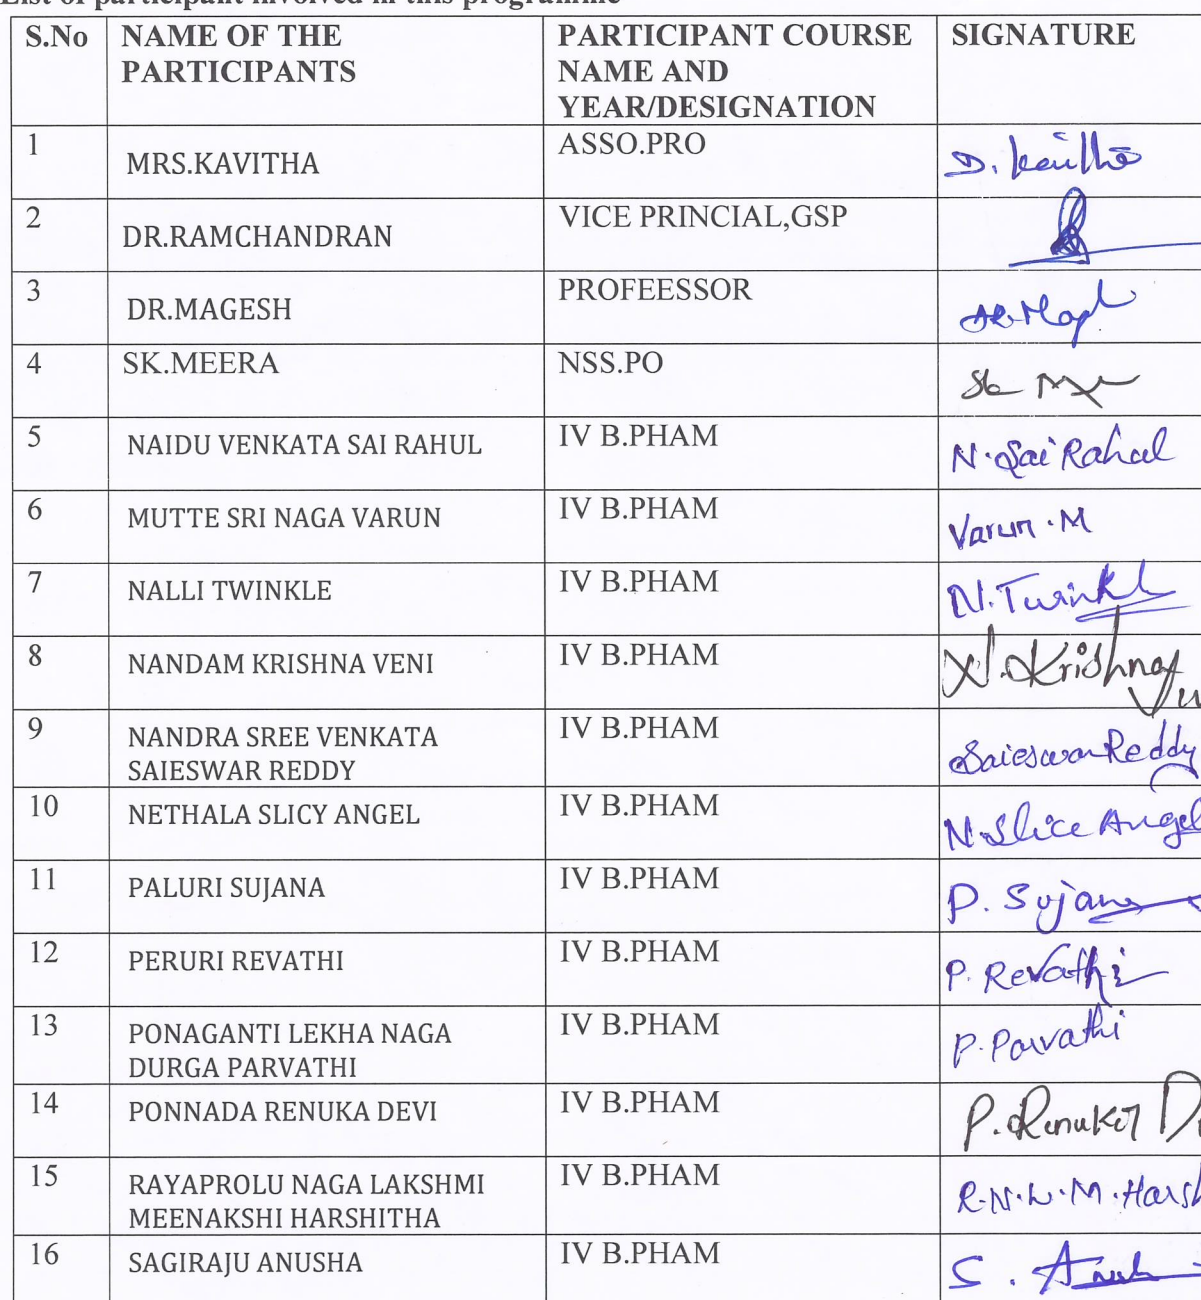 List of participant involved in this programme
S.No NAME OF THE PARTICIPANTS PARTICIPANT COURSE NAME AND YEAR/DESIGNATION SIGNATURE
1 MRS.KAVITHA ASSO.PRO D. Kavitha
2 DR.RAMCHANDRAN VICE PRINCIAL,GSP
3 DR.MAGESH PROFEESSOR
4 SK.MEERA NSS.PO Sk
5 NAIDU VENKATA SAI RAHUL IV B.PHAM N. Sai Rahul
6 MUTTE SRI NAGA VARUN IV B.PHAM Varun.M
7 NALLI TWINKLE IV B.PHAM N.Twinkl
8 NANDAM KRISHNA VENI IV B.PHAM N. Krishna
9 NANDRA SREE VENKATA SAIESWAR REDDY IV B.PHAM Saieswar Reddy
10 NETHALA SLICY ANGEL IV B.PHAM N. Slice Angel
11 PALURI SUJANA IV B.PHAM P. Sujana
12 PERURI REVATHI IV B.PHAM P. Revathi
13 PONAGANTI LEKHA NAGA DURGA PARVATHI IV B.PHAM P. Parvathi
14 PONNADA RENUKA DEVI IV B.PHAM P. Renuka D
15 RAYAPROLU NAGA LAKSHMI MEENAKSHI HARSHITHA IV B.PHAM R.N.L.M.Harsh
16 SAGIRAJU ANUSHA IV B.PHAM S.